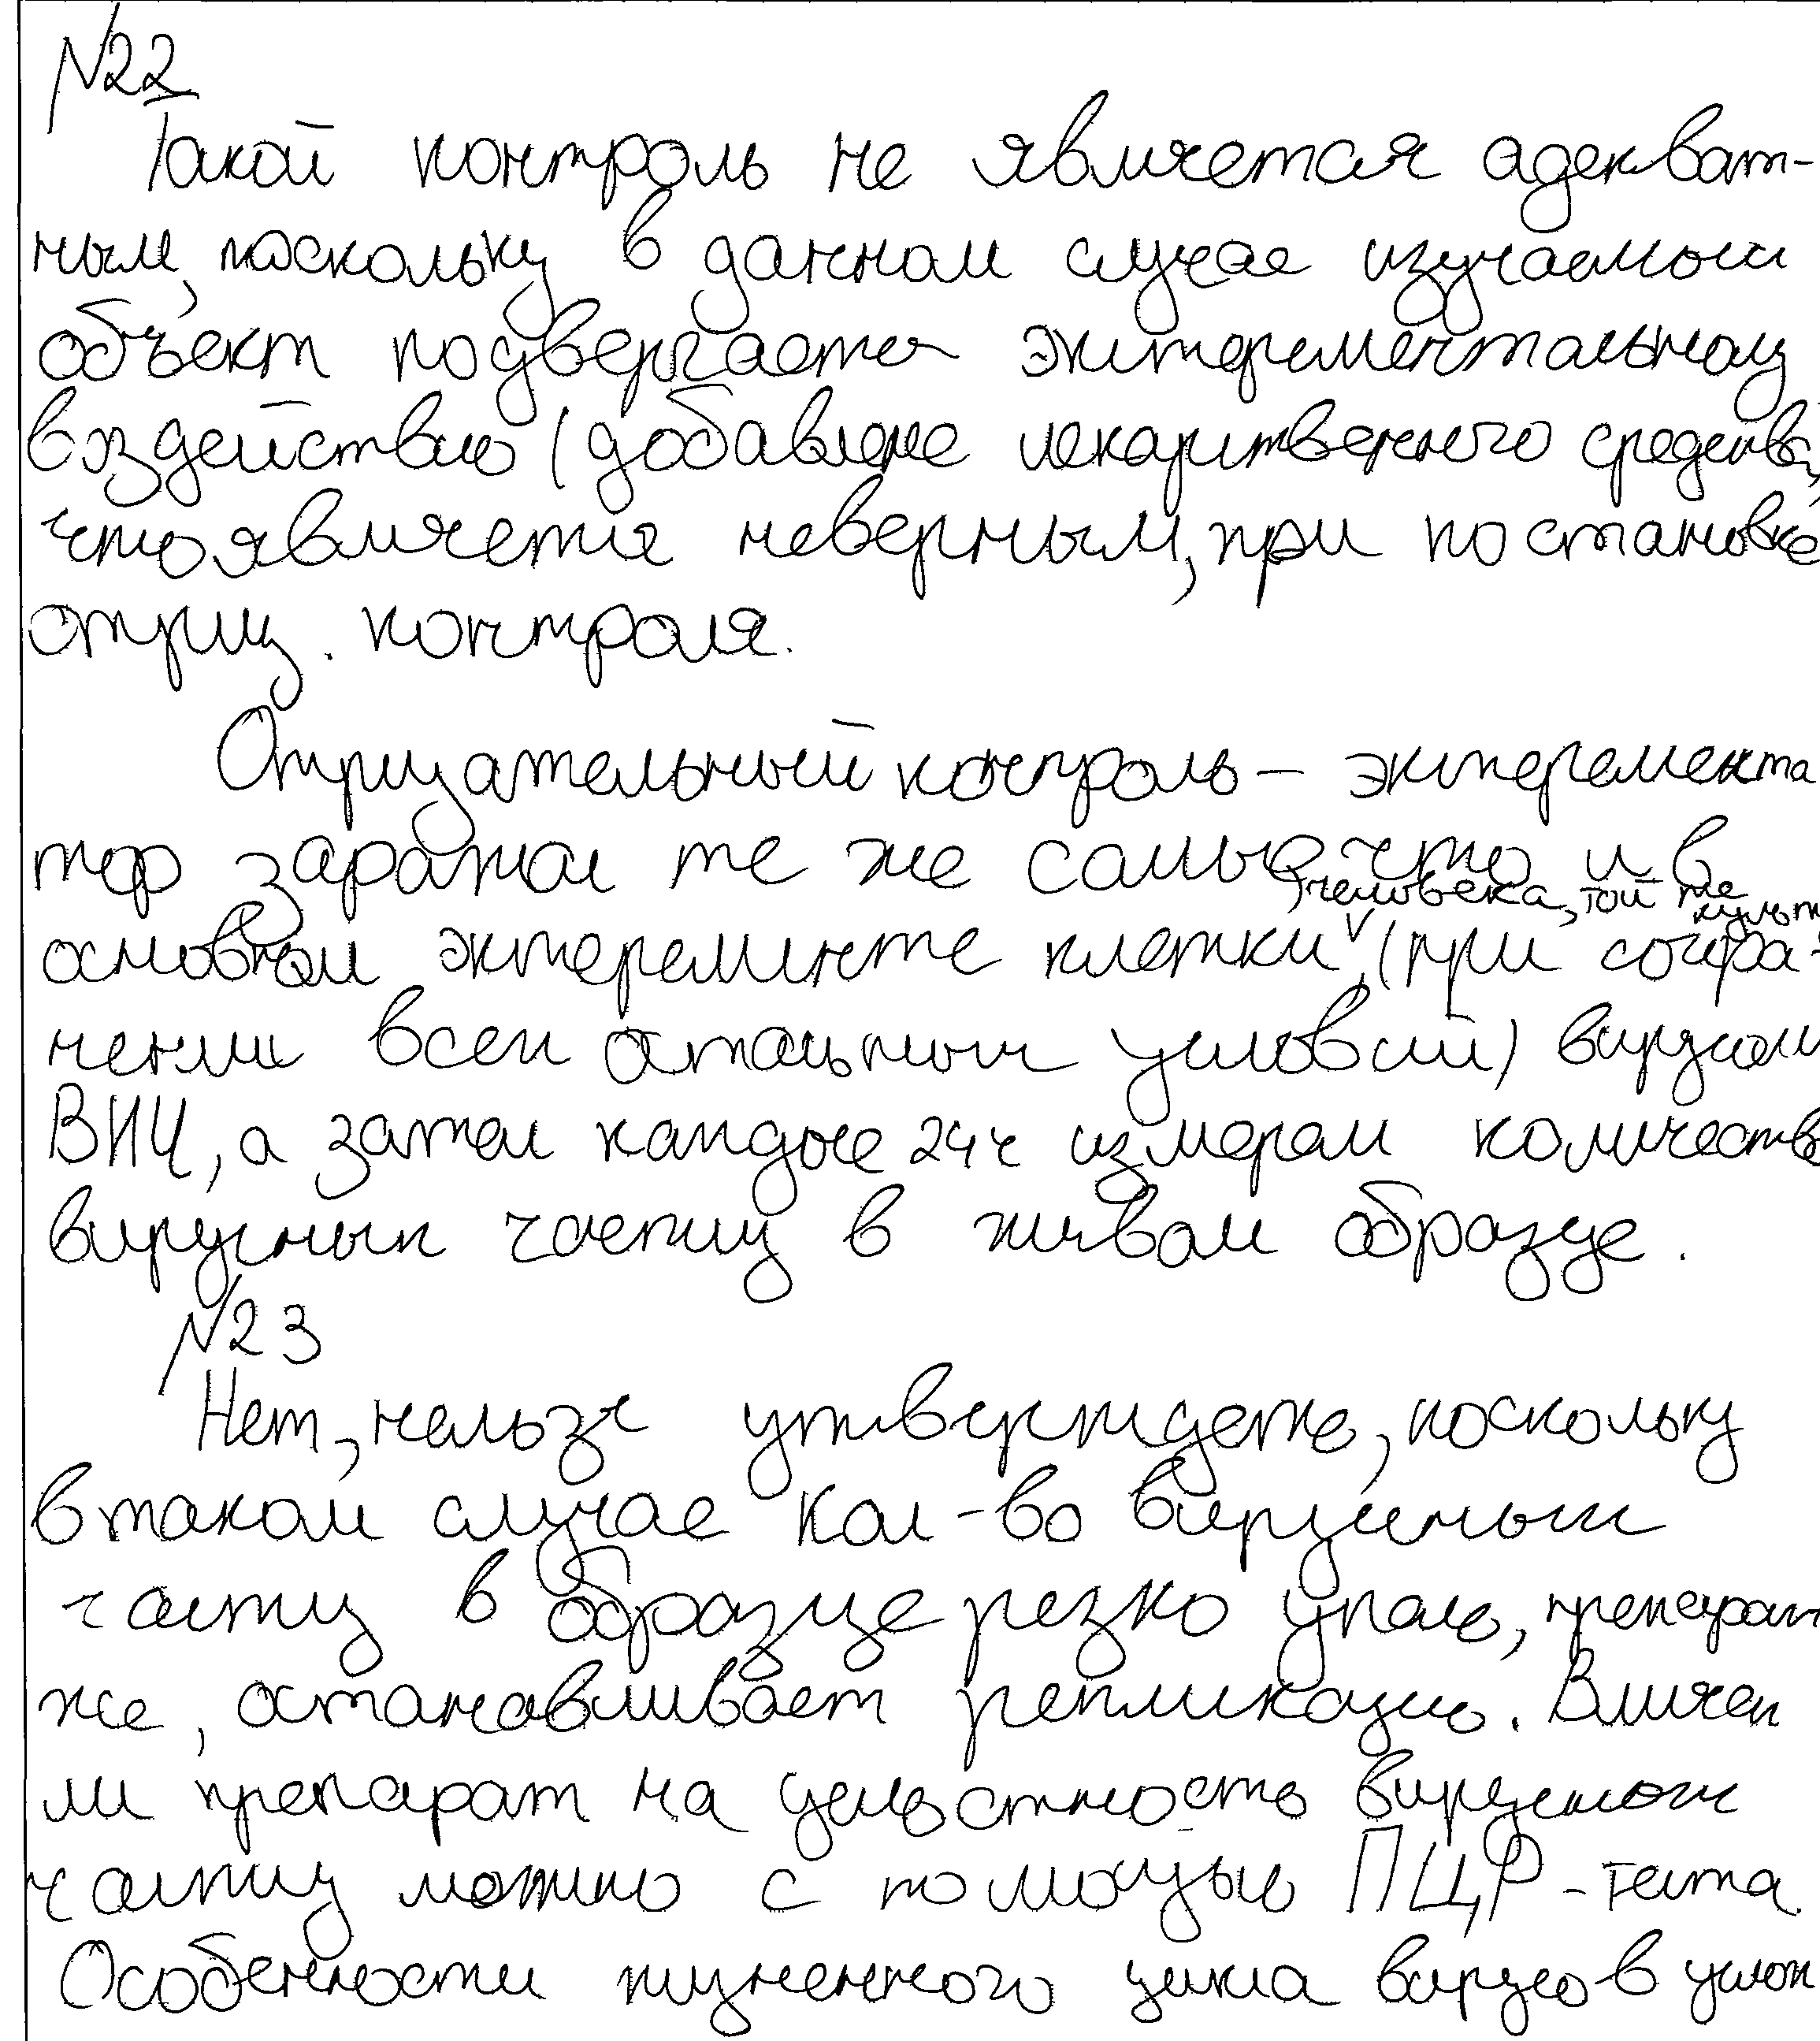 №22
Такой контроль не является адекват-
ным, поскольку в данном случае изучаемый
объект подвергается эксперементальному
воздействию (добавление лекарственного средства,
что является неверным, при постановке
отриц. контроля.
Отрицательный контроль – эксперемента
тор заражал те же самые что и в
человека, той же культ
основном эксперементе клетки V (при сохра-
нении всех остальных условий) вирусом
ВИЧ, а затем каждые 24ч измерял количество
вирусных частиц в живом образце.
№23
Нет, нельзя утверждать, поскольку
в таком случае кол-во вирусных
частиц в образце резко упало, препарат
же, останавливает репликацию. Влияет
ли препарат на целостность вирусных
частиц можно с помощью ПЦР-теста.
Особенности жизненного цикла вирусов